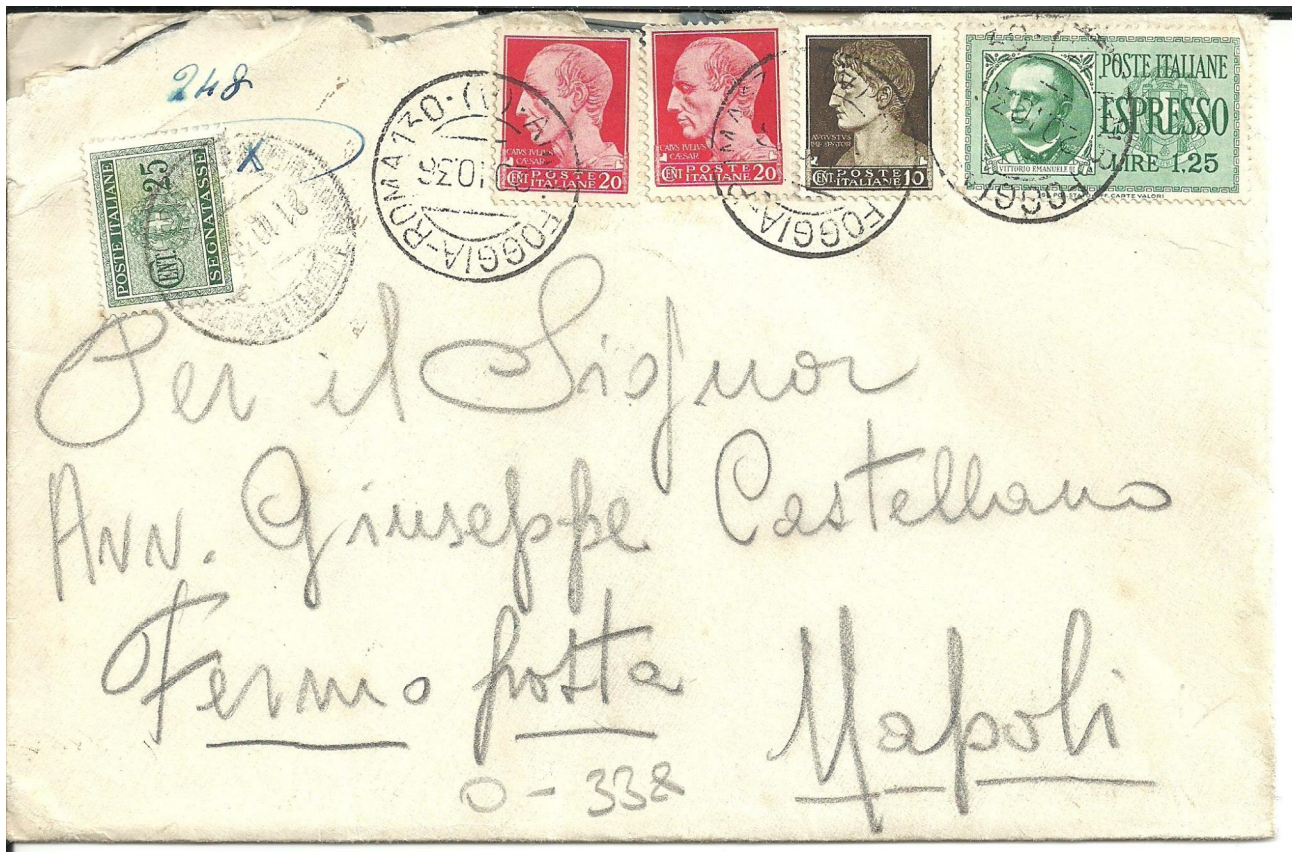 248
POSTE ITALIANE
CENT. 25
SEGNATASSE
X
21.10.3
FOGGIA-ROMA 130·(A)·AM
20.10.36
CAIVS IVLIVS
CÆSAR
CENT POSTE ITALIANE 20
CAIVS IVLIVS
CÆSAR
CENT POSTE ITALIANE 20
AVGVSTVS
IMPERATOR
CENT POSTE ITALIANE 10
FOGGIA-R
POSTE ITALIANE
ESPRESSO
LIRE 1.25
VITTORIO EMANUELE III
CARTE VALORI
FOGGIA
Per il Signor
Avv. Giuseppe Castellano
Fermo posta Napoli
0-338